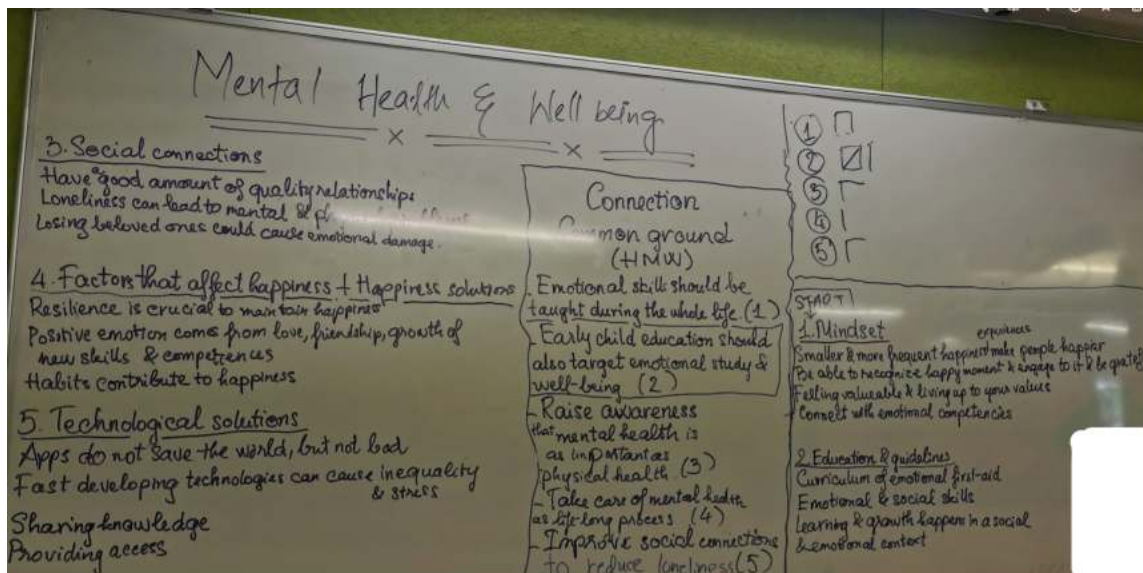 Mental Health & Well being
3. Social connections
Have a good amount of quality relationships
Loneliness can lead to mental &
Losing beloved ones could cause emotional damage.
4. Factors that affect happiness + Happiness solutions
Resilience is crucial to maintain happiness
Positive emotion comes from love, friendship, growth of
new skills & competences
Habits contribute to happiness
5. Technological solutions
Apps do not save the world, but not bad
Fast developing technologies can cause inequality
& stress
Sharing knowledge
Providing access
Connection
Common ground
(HMW)
- Emotional skill should be
taught during the whole life (1)
- Early child education should
also target emotional study &
well-being (2)
- Raise awareness
that mental health is
as important as
physical health (3)
- Take care of mental health
as life-long process (4)
- Improve social connections
to reduce loneliness (5)
1
2
3
4
5
START
1. Mindset
Smaller & more frequent happiness make people happier
Be able to recognize happy moment & engage to it & be grateful
Felling valueable & living up to your values
Connect with emotional competencies
2. Education & guidelines
Curriculum of emotional first-aid
Emotional & social skills
Learning & growth happen in a social
& emotional context